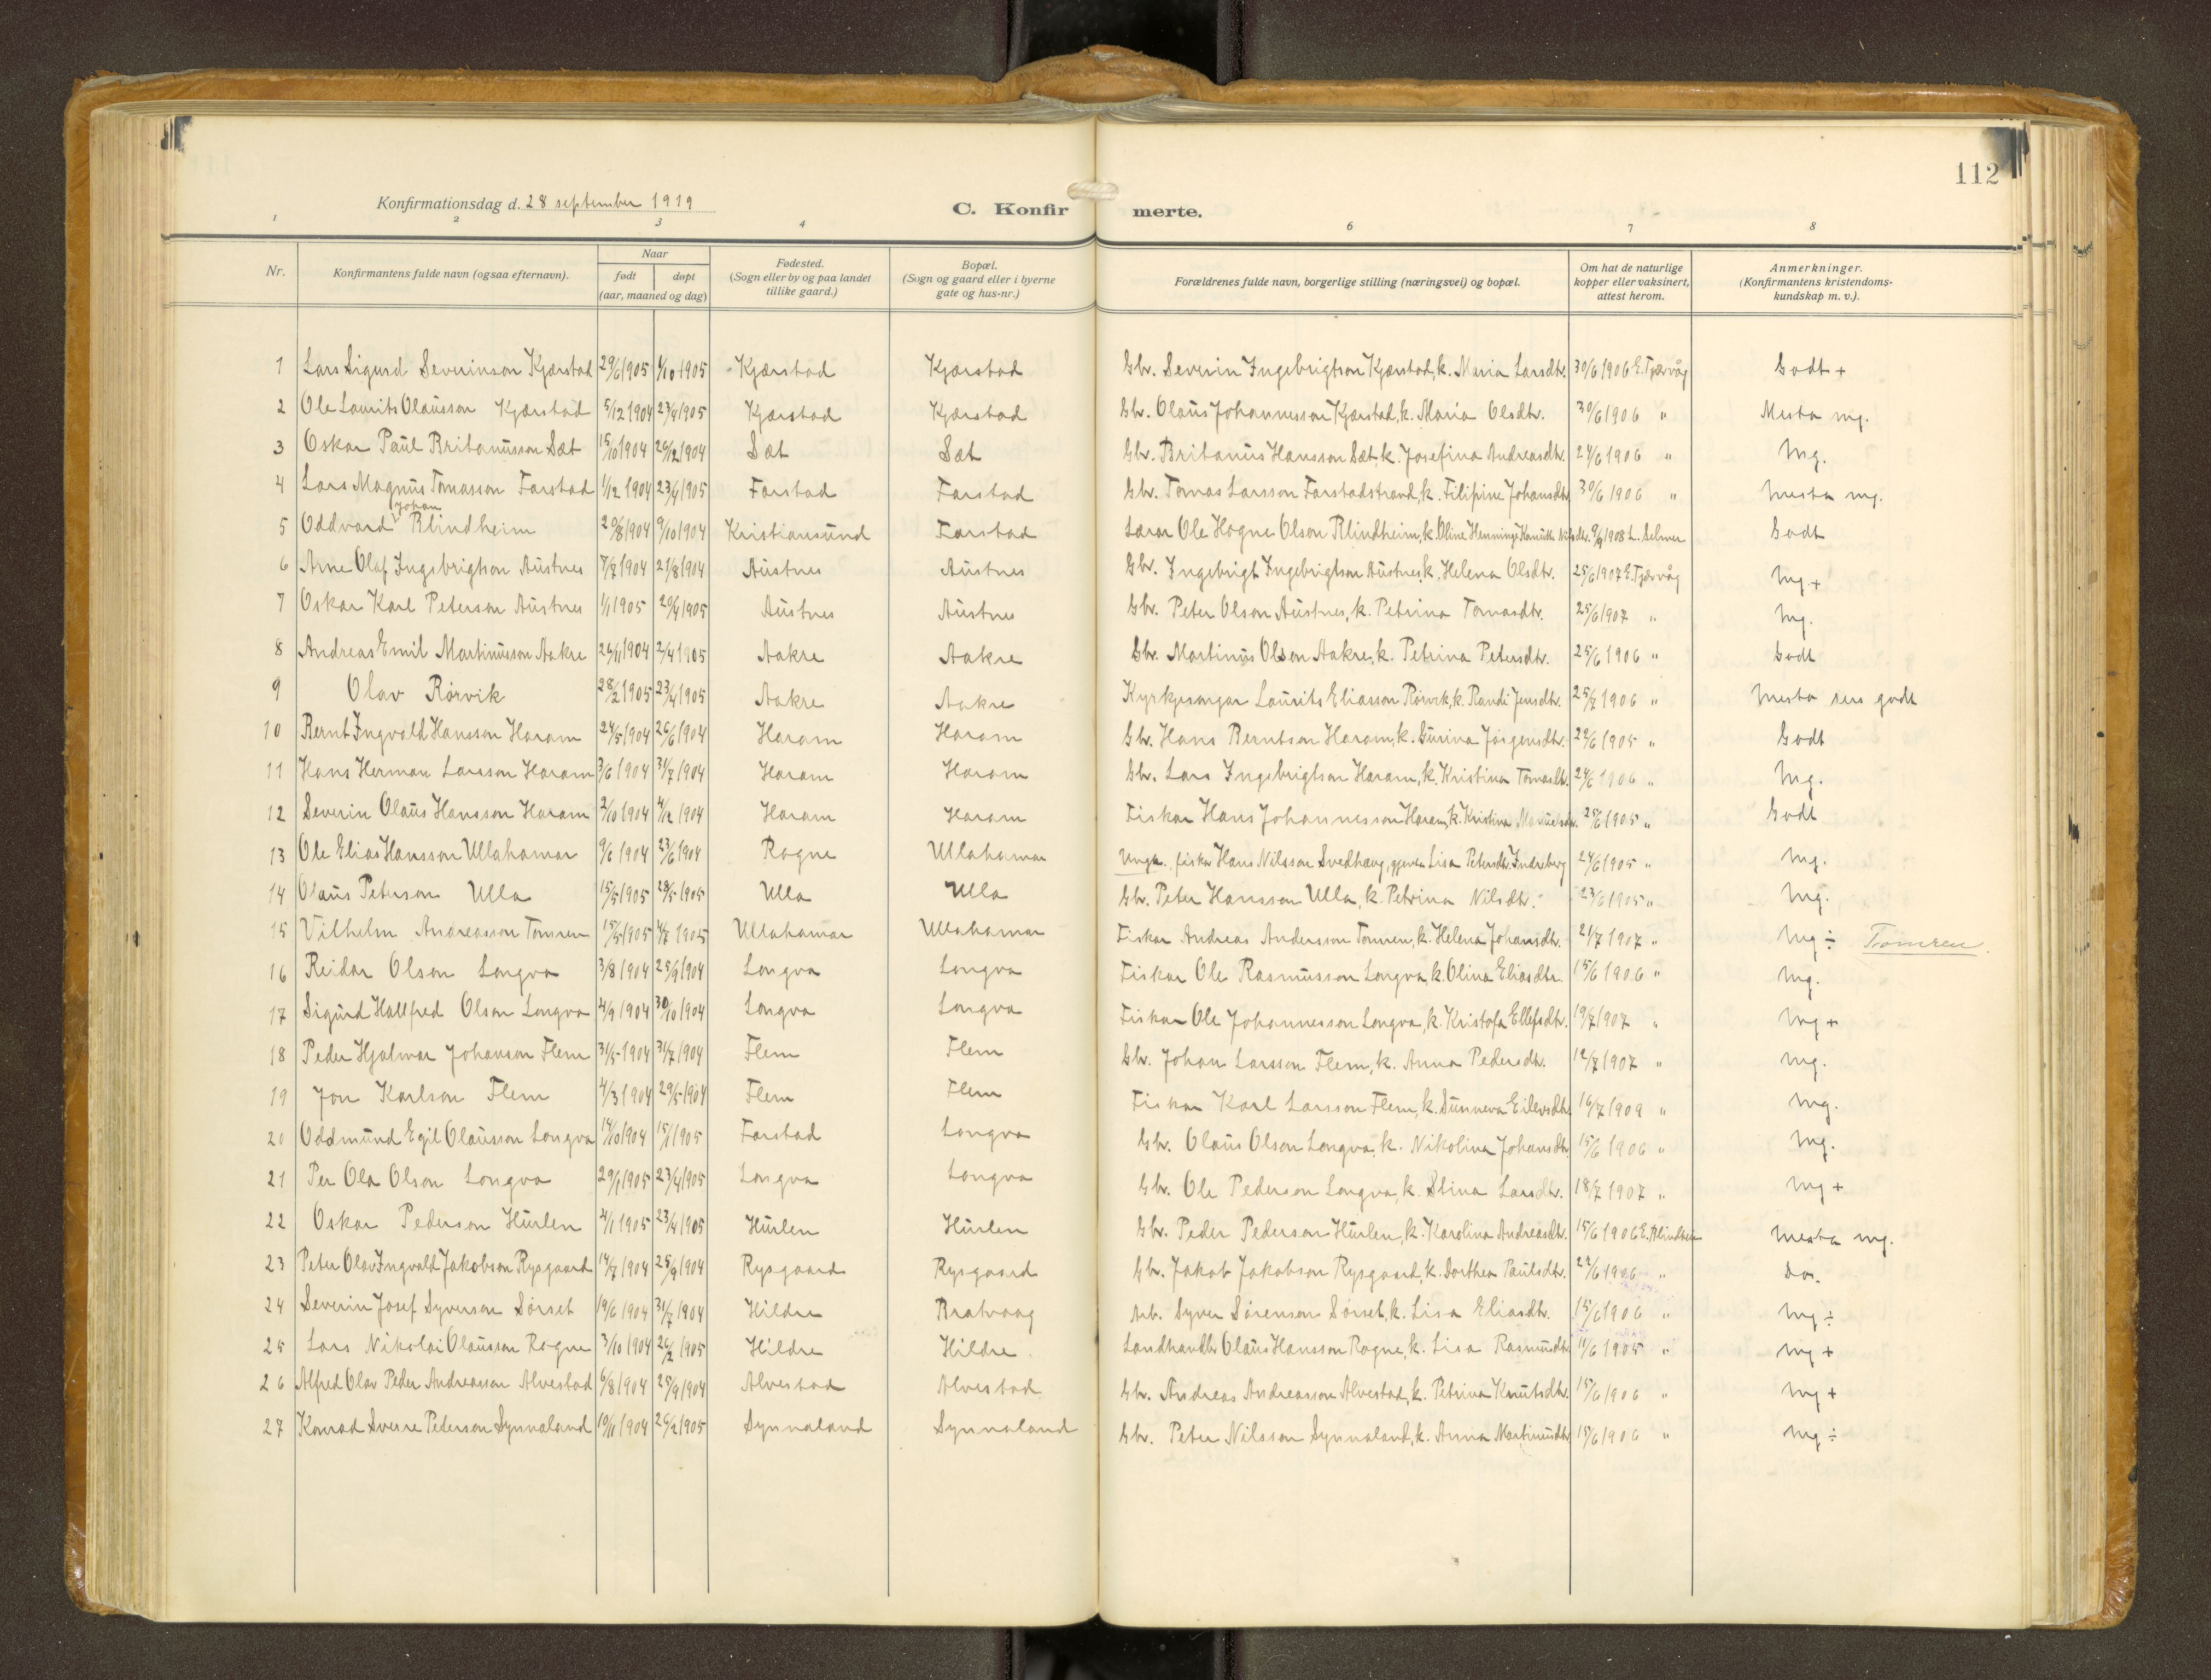 112
Konfirmationsdag d. 28 september 1919
C. Konfir merte.
1 2 3 4 6 7 8
Nr. | Konfirmantens fulde navn (ogsaa efternavn). | Naar født | døpt (aar, maaned og dag) | Fødested. (Sogn eller by og paa landet tillike gaard.) | Bopæl. (Sogn og gaard eller i byerne gate og hus-nr.) | Forældrenes fulde navn, borgerlige stilling (næringsvei) og bopæl. | Om hat de naturlige kopper eller vaksinert, attest herom. | Anmerkninger. (Konfirmantens kristendomskundskap m. v.).
1 Lars Sigurd Severinson Kjærstad 29/6 1905 1/10 1905 Kjærstad Kjærstad Gbr. Severin Ingebrigtson Kjærstad, k. Maria Larsdtr. 30/6 1906 E. Tjærvåg Godt +
2 Ole Laurits Olausson Kjærstad 5/12 1904 23/4 1905 Kjærstad Kjærstad Gbr. Olaus Johannesson Kjærstad, k. Maria Olsdtr. 30/6 1906 " Mesta mg.
3 Oskar Paul Britanusson Sæt 15/10 1904 26/12 1904 Sæt Sæt Gbr. Britanus Hansson Sæt, k. Josefina Andreasdtr. 24/6 1906 " Mg.
4 Lars Magnus Tomasson Farstad 1/12 1904 23/4 1905 Farstad Farstad Gbr. Tomas Larsson Farstadstrand, k. Filipine Johansdtr. 30/6 1906 " Mesta mg.
5 Oddvard Johan Blindheim 20/8 1904 9/10 1904 Kristiansund Farstad Lærar Ole Hogne Olson Blindheim, k. Oline Henninge Nilsdtr. 9/9 1908 L. Selmer Godt
6 Arne Olaf Ingebrigtson Austnes 7/7 1904 21/8 1904 Austnes Austnes Gbr. Ingebrigt Ingebrigtson Austnes, k. Helena Olsdtr. 25/6 1907 E. Tjærvåg Mg +
7 Oskar Karl Peterson Austnes 1/1 1905 20/4 1905 Austnes Austnes Gbr. Peter Olson Austnes, k. Petrina Tomasdtr. 25/6 1907 " Mg.
8 Andreas Emil Martinusson Aakre 26/11 1904 2/4 1905 Aakre Aakre Gbr. Martinus Olsen Aakre, k. Petrina Petersdtr. 25/6 1906 " Godt
9 Olav Rørvik 28/2 1905 23/4 1905 Aakre Aakre Kyrkjesongar Laurits Eliasson Rørvik, k. Randi Jensdtr. 25/7 1906 " Mesta sers godt
10 Bernt Ingvald Hansson Haram 24/5 1904 26/6 1904 Haram Haram Gbr. Hans Berntson Haram, k. Gurina Jørgensdtr. 22/6 1905 " Godt
11 Hans Herman Larsson Haram 3/6 1904 31/7 1904 Haram Haram Gbr. Lars Ingebrigtson Haram, k. Kristina Tomasdtr. 24/6 1906 " Mg.
12 Severin Olaus Hansson Haram 2/10 1904 4/12 1904 Haram Haram Fiskar Hans Johannesson Haram, k. Kristina 25/6 1905 " Godt
13 Ole Elias Hansson Ullahamar 9/6 1904 23/6 1904 Rogne Ullahamar Ungk. fiskar Hans Nilsson Svedhaug, gjenta Lisa Petersdtr. Indreberg 24/6 1905 " Mg.
14 Olaus Peterson Ulla 15/5 1905 28/5 1905 Ulla Ulla Gbr. Peter Hansson Ulla, k. Petrina Nilsdtr. 23/6 1905 " Mg.
15 Vilhelm Andreasson Tomren 15/5 1905 4/7 1905 Ullahamar Ullahamar Fiskar Andreas Andersson Tomren, k. Helena Johansdtr. 21/7 1907 " Mg ÷ Tomren.
16 Reidar Olson Longva 3/8 1904 25/9 1904 Longva Longva Fiskar Ole Rasmusson Longva, k. Olina Eliasdtr. 15/6 1906 " Mg.
17 Sigurd Hallfred Olson Longva 4/9 1904 30/10 1904 Longva Longva Fiskar Ole Johannesson Longva, k. Kristofa Ellefsdtr. 19/7 1907 " Mg +
18 Peder Hjalmar Johanson Flem 31/5 1904 31/7 1904 Flem Flem Gbr. Johan Larsson Flem, k. Anna Pedersdtr. 12/7 1907 " Mg.
19 Jon Karlson Flem 4/3 1904 29/5 1904 Flem Flem Fiskar Karl Larsson Flem, k. Sunneva Eilevsdtr. 16/7 1909 " Mg.
20 Oddmund Egil Olausson Longva 14/10 1904 15/1 1905 Farstad Longva Gbr. Olaus Olson Longva, k. Nikolina Johansdtr. 15/6 1906 " Mg.
21 Per Ola Olson Longva 29/1 1905 23/4 1905 Longva Longva Gbr. Ole Pederson Longva, k. Stina Larsdtr. 18/7 1907 " Mg +
22 Oskar Pederson Hurlen 4/1 1905 23/4 1905 Hurlen Hurlen Gbr. Peder Pederson Hurlen, k. Karolina Andreasdtr. 15/6 1906 E. Blindheim Mesta mg.
23 Peter Olav Ingvald Jakobson Rysgaard 14/7 1904 25/9 1904 Rysgaard Rysgaard Gbr. Jakob Jakobson Rysgaard, k. Dorthea Paulsdtr. 22/6 1906 " Do.
24 Severin Josef Syverson Sørset 19/6 1904 31/7 1904 Hildre Bratvaag Arb. Syver Sørenson Sørset, k. Lisa Eliasdtr. 15/6 1906 " Mg ÷
25 Lars Nikolai Olausson Rogne 3/10 1904 26/2 1905 Hildre Hildre Landhandlr Olaus Hansson Rogne, k. Lisa Rasmusdtr. 11/6 1905 " Mg +
26 Alfred Olav Peder Andreasson Alvestad 6/8 1904 25/9 1904 Alvestad Alvestad Gbr. Andreas Andreasson Alvestad, k. Petrina Knutsdtr. 15/6 1906 " Mg +
27 Konrad Sverre Peterson Synnaland 10/11 1904 26/2 1905 Synnaland Synnaland Gbr. Peter Nilsson Synnaland, k. Anna Martinusdtr. 15/6 1906 " Mg ÷